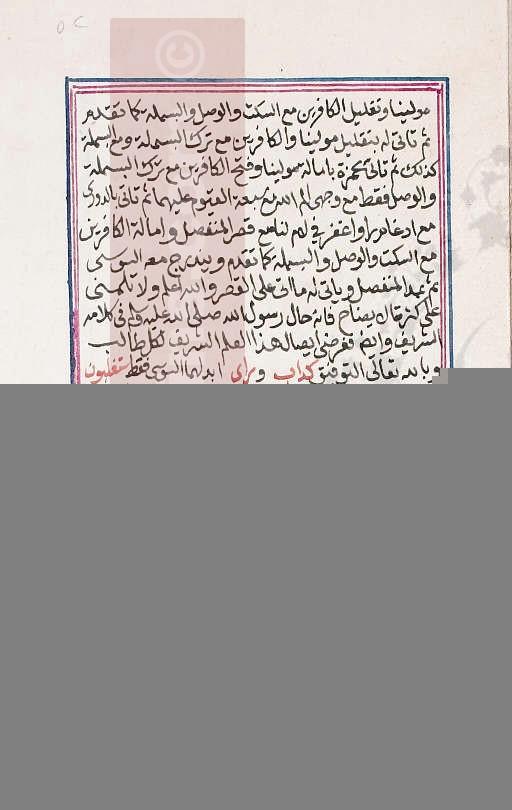 مولينا وتقليل الكافرين مع السكت والوصل والبسملة كما تقدم
ثم تاتى له بتقليل مولينا والكافرين مع ترك البسملة ومع البسملة
كذلك ثم تاتى بحمزة بامالة مولينا وفتح الكافرين مع ترك البسملة
والوصل فقط مع وجهى الم الله ثم عليهما ثم تاتى بالدورى
مع ادغام را واغفر فى لام لنا مع قصر المنفصل وامالة الكافرين
مع السكت والوصل والبسملة كما تقدم ويندرج معه السوسى
ثم بمد المنفصل وياتى له ما اتى على القصر والله اعلم ولا تلمنى
على كثرة فانه حال رسول الله صلى الله عليه وسلم فى كلامه
الشريف وايضا فغرضى ايصال هذا العلم الشريف لكل طالب
وبالله تعالى التوفيق كداب وراى ابدلهما السوسى فقط ستغلبون